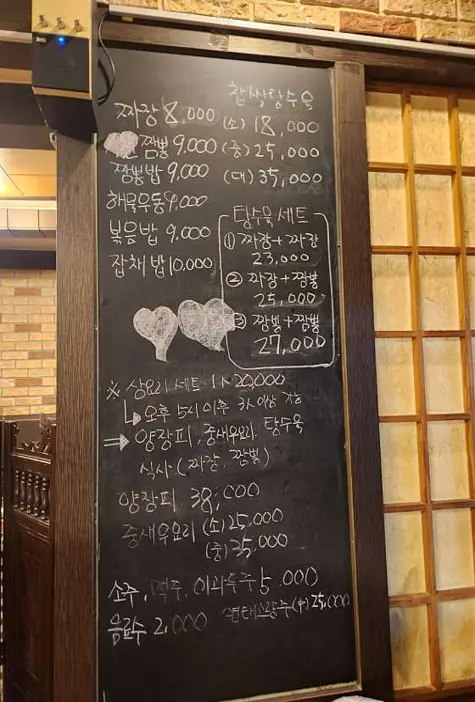 찹쌀탕수육
짜장 8,000 (소) 18,000
짬뽕 9,000 (중) 25,000
짬뽕밥 9,000 (대) 35,000
해물우동 9,000
볶음밥 9,000
잡채밥 10,000
탕수육 세트
① 짜장 + 짜장
23,000
② 짜장 + 짬뽕
25,000
③ 짬뽕 + 짬뽕
27,000
※ 상요리 세트 1人 20,000
↳ 오후 5시 이후 3人 이상 가능
⇒ 양장피, 중새우요리, 탕수육
식사 (짜장, 짬뽕)
양장피 38,000
중새우요리 (소) 25,000
(중) 35,000
소주, 맥주, 이과두주 5,000
음료수 2,000 연태고량주 (中) 25,000